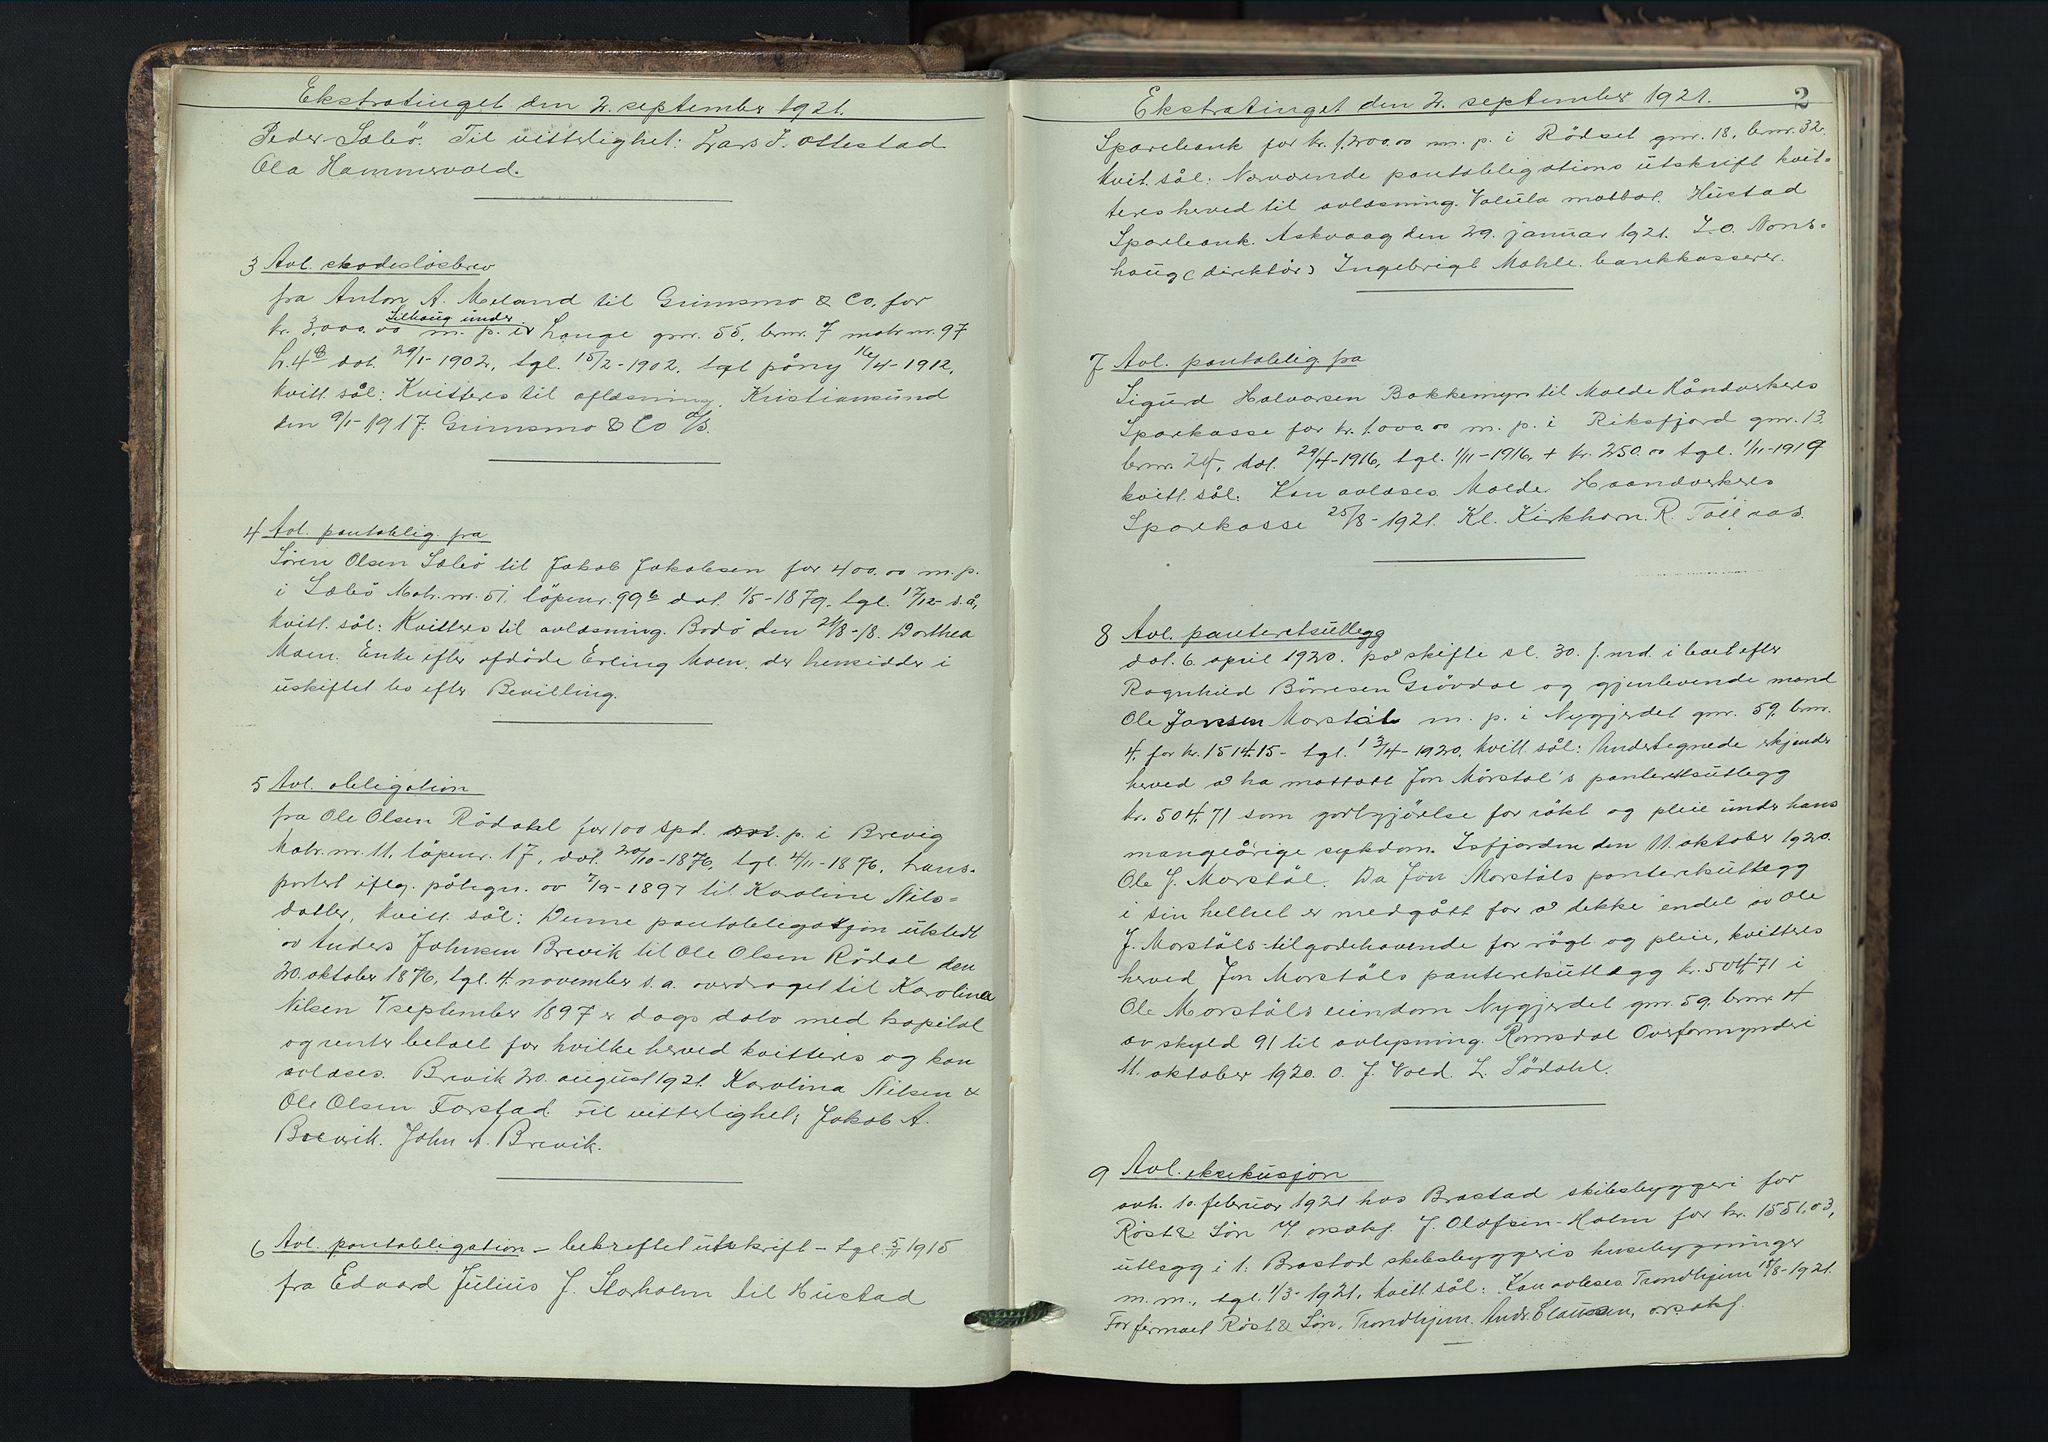 Ekstratinget den 2. september 1921.
Peder Sæbö. Til vitterlighet: Lars J. Ottestad
Ola Hammervold.
3 Avl. skadesløsbrev
fra Anton A. Meland til Grimsmo & Co, for
Lilhaug under
kr. 3,000.00 m. p. i Hauge gnr. 55, bnr. 7 matr. nr. 97
L. 4 8 dat. 29/1-1902, tgl. 15/2-1902, tgl påny 16/4-1912,
kvitt. sål: Kvitteres til aflæsning. Kristiansund
den 9/1-1917. Grimsmo & Co A/S.
4 Avl. pantoblig. fra
Søren Olsen Sæbö til Jakob Jakobsen for 400.00 m. p.
i Sæbö Matr. nr. 51. löpenr. 99 b dat. 1/5-1879, tgl. 17/12- s. å,
kvitt. sål: Kvitteres til avlæsning. Bodö den 21/8-18. Dorthea
Moen. Enke efter afdöde Erling Moen, der hensidder i
uskiftet bo efter Bevilling.
5 Avl. obligation
fra Ole Olsen Rödahl for 100 spd. m. p. i Brevig
Matr. nr. 11. löpenr. 17, dat. 20/10-1876, tgl. 4/11-1876, trans-
portert iflg. påtegn. av 7/9-1897 til Karoline Nils-
datter, kvitt. sål: Denne pantobligatsjon utstedt
av Anders Johnsen Brevik til Ole Olsen Rødal den
20. oktober 1876, tgl. 4. november s. a. overdraget til Karolina
Nilsen 7 september 1897 er dags dato med kapital
og renter betalt for hvilke herved kvitteres og kan
avlæses. Brevik 20. august 1921. Karolina Nilsen &
Ole Olsen Farstad. Til vitterlighet, Jakob A.
Brevik. John A. Brevik.
6 Avl. pantobligation - bekreftet utskrift - tgl. 5/11 1915
fra Edvard Julius J. Storholm til Hustad
Ekstratinget den 2. september 1921. 2
Sparebank for kr. 1,200.00 m. p. i Rødset gnr. 18, bnr. 32.
kvit. sål: Nærværende pantobligations utskrift kvit-
teres herved til avlæsning. Valuta mottat. Hustad
Sparebank. Askvaag den 29. januar 1921. J. O. Nons-
haug (direktör) Ingebrigt Mahle. bankkasserer.
7 Avl. pantoblig. fra
Sigurd Halvorsen Bakkemyr til Molde Håndverkeres
Sparekasse for kr. 1,000.00 m. p. i Riksfjord gnr. 13.
bnr. 24, dat. 29/4-1916, tgl. 1/11-1916, + kr. 250.00 tgl. 1/11-1919
kvitt. sål: Kan avlæses. Molde Haandverkeres
Sparekasse 25/8-1921. Kl. Kirkhorn. R. Töllaas.
8 Avl. panteretsutlegg
dat. 6. april 1920. på skifte sl. 30. f. md. i boet efter
Ragnhild Börresen Grövdal og gjenlevende mand
Ole Jonsen Morstöl m. p. i Nygjerdet gnr. 59, bnr.
4, for kr. 1514.15- tgl. 13/4-1920, kvitt. sål: Undertegnede erkjender
herved å ha mottatt Jon Mörstöl's panteretsutlegg
kr. 504.71 som godtgjörelse for rökt og pleie under hans
mangeårige sykdom. Isfjorden den 11. oktober 1920.
Ole J. Morstöl. Da Jon Morstöls panteretsutlegg
i sin helhet er medgått for å dekke endel av Ole
J. Morstöls tilgodehavende for rögt og pleie, kvitteres
herved Jon Morstöls panteretsutlegg kr. 504,71 i
Ole Morstöls eiendom Nygjerdet gnr. 59, bnr 4
av skyld 91 til avlysning. Romsdal Overformynderi
11. oktober 1920. O. J. Vold. L. Södahl.
9 Avl. eksekusjon
avh. 10. februar 1921 hos Brastad skibsbyggeri for
Røst & Søn v/ orsakf. J. Olafsen-Holm for kr. 1551,03,
utlegg i 1. Brastad skibsbyggeris husebygninger
m. m., tgl. 1/3-1921, kvitt. sål: Kan avleses. Trondhjem 15/8-1921.
For firmaet Røst & Søn, Trondhjem. Andr. Claussen, orsakf.